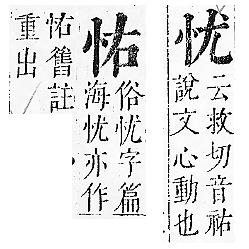 忧
云救切音祐
說文心動也
怞
俗忧字篇
海忧亦作
怞舊註
重出